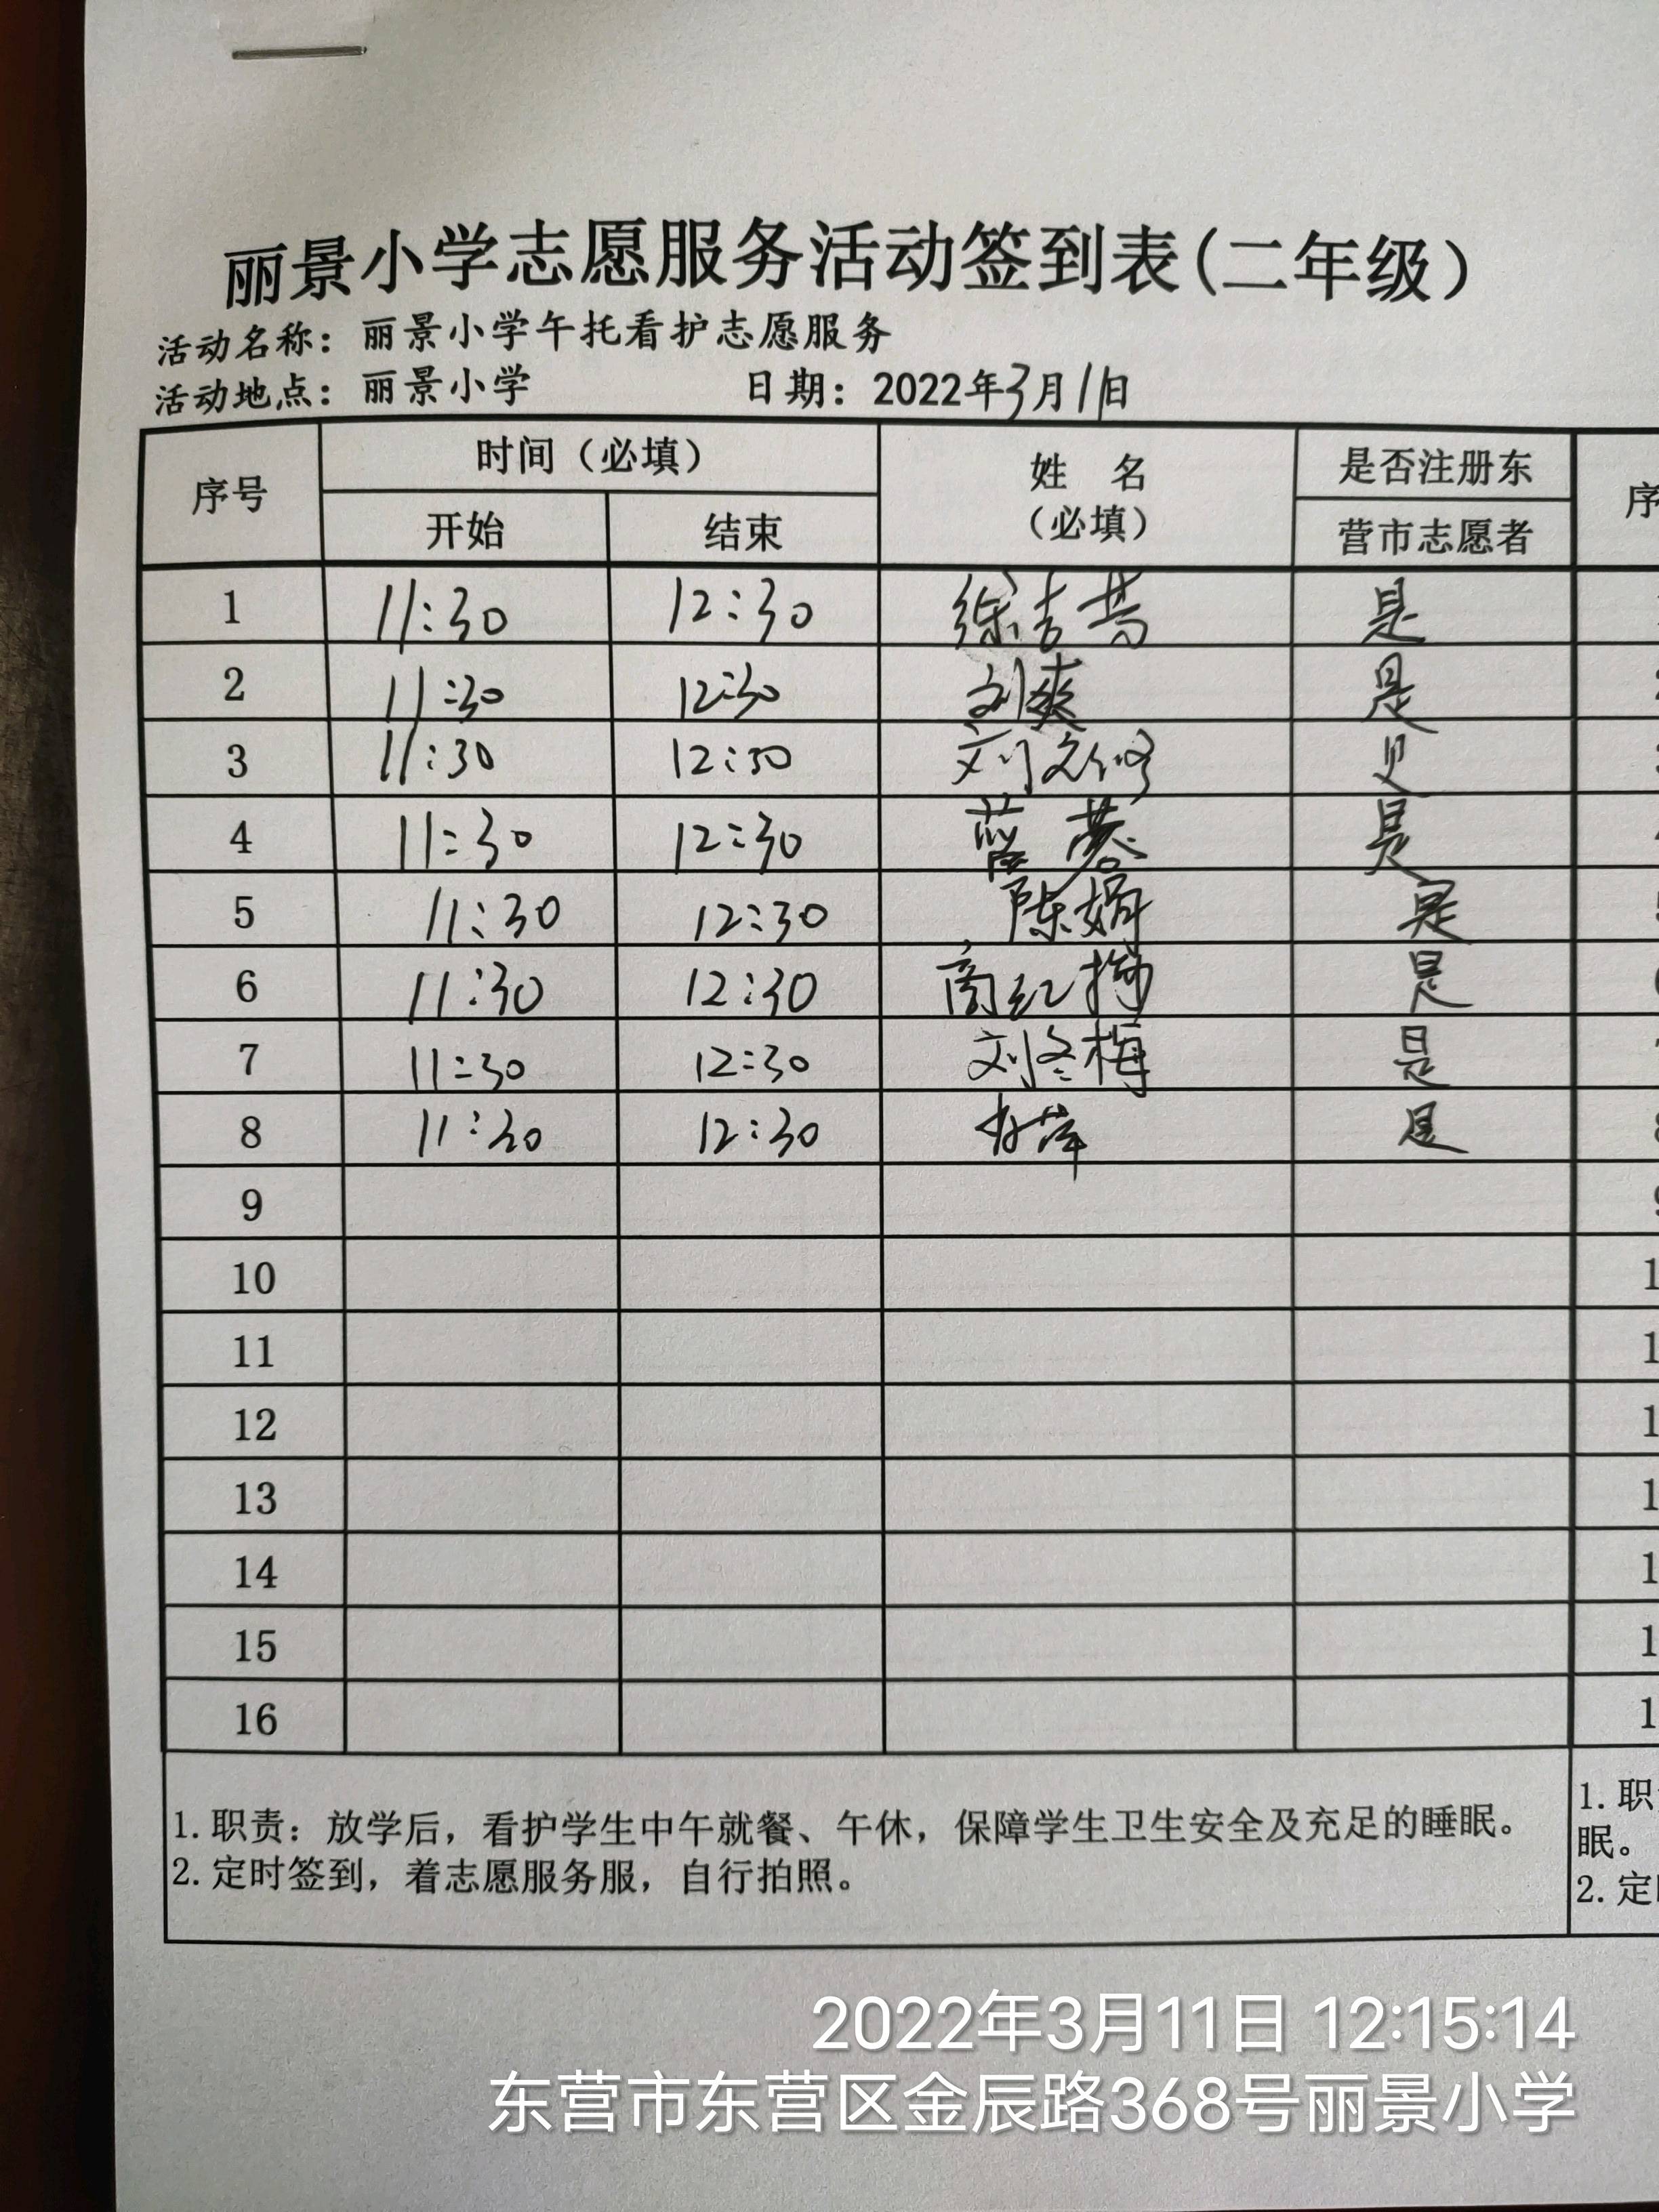 丽景小学志愿服务活动签到表(二年级)
活动名称：丽景小学午托看护志愿服务
活动地点：丽景小学 日期：2022年3月11日
序号 时间（必填） 姓 名 是否注册东 序
开始 结束 （必填） 营市志愿者
1 11:30 12:30 是
2 11:30 12:30 刘爽 是
3 11:30 12:30 刘 是
4 11:30 12:30 是
5 11:30 12:30 陈娟 是
6 11:30 12:30 商红 是
7 11:30 12:30 刘冬梅 是
8 11:30 12:30 是
9
10 1
11 1
12 1
13 1
14 1
15 1
16 1
1.职责：放学后，看护学生中午就餐、午休，保障学生卫生安全及充足的睡眠。
2.定时签到，着志愿服务服，自行拍照。
1.职
眠。
2.定
2022年3月11日 12:15:14
东营市东营区金辰路368号丽景小学